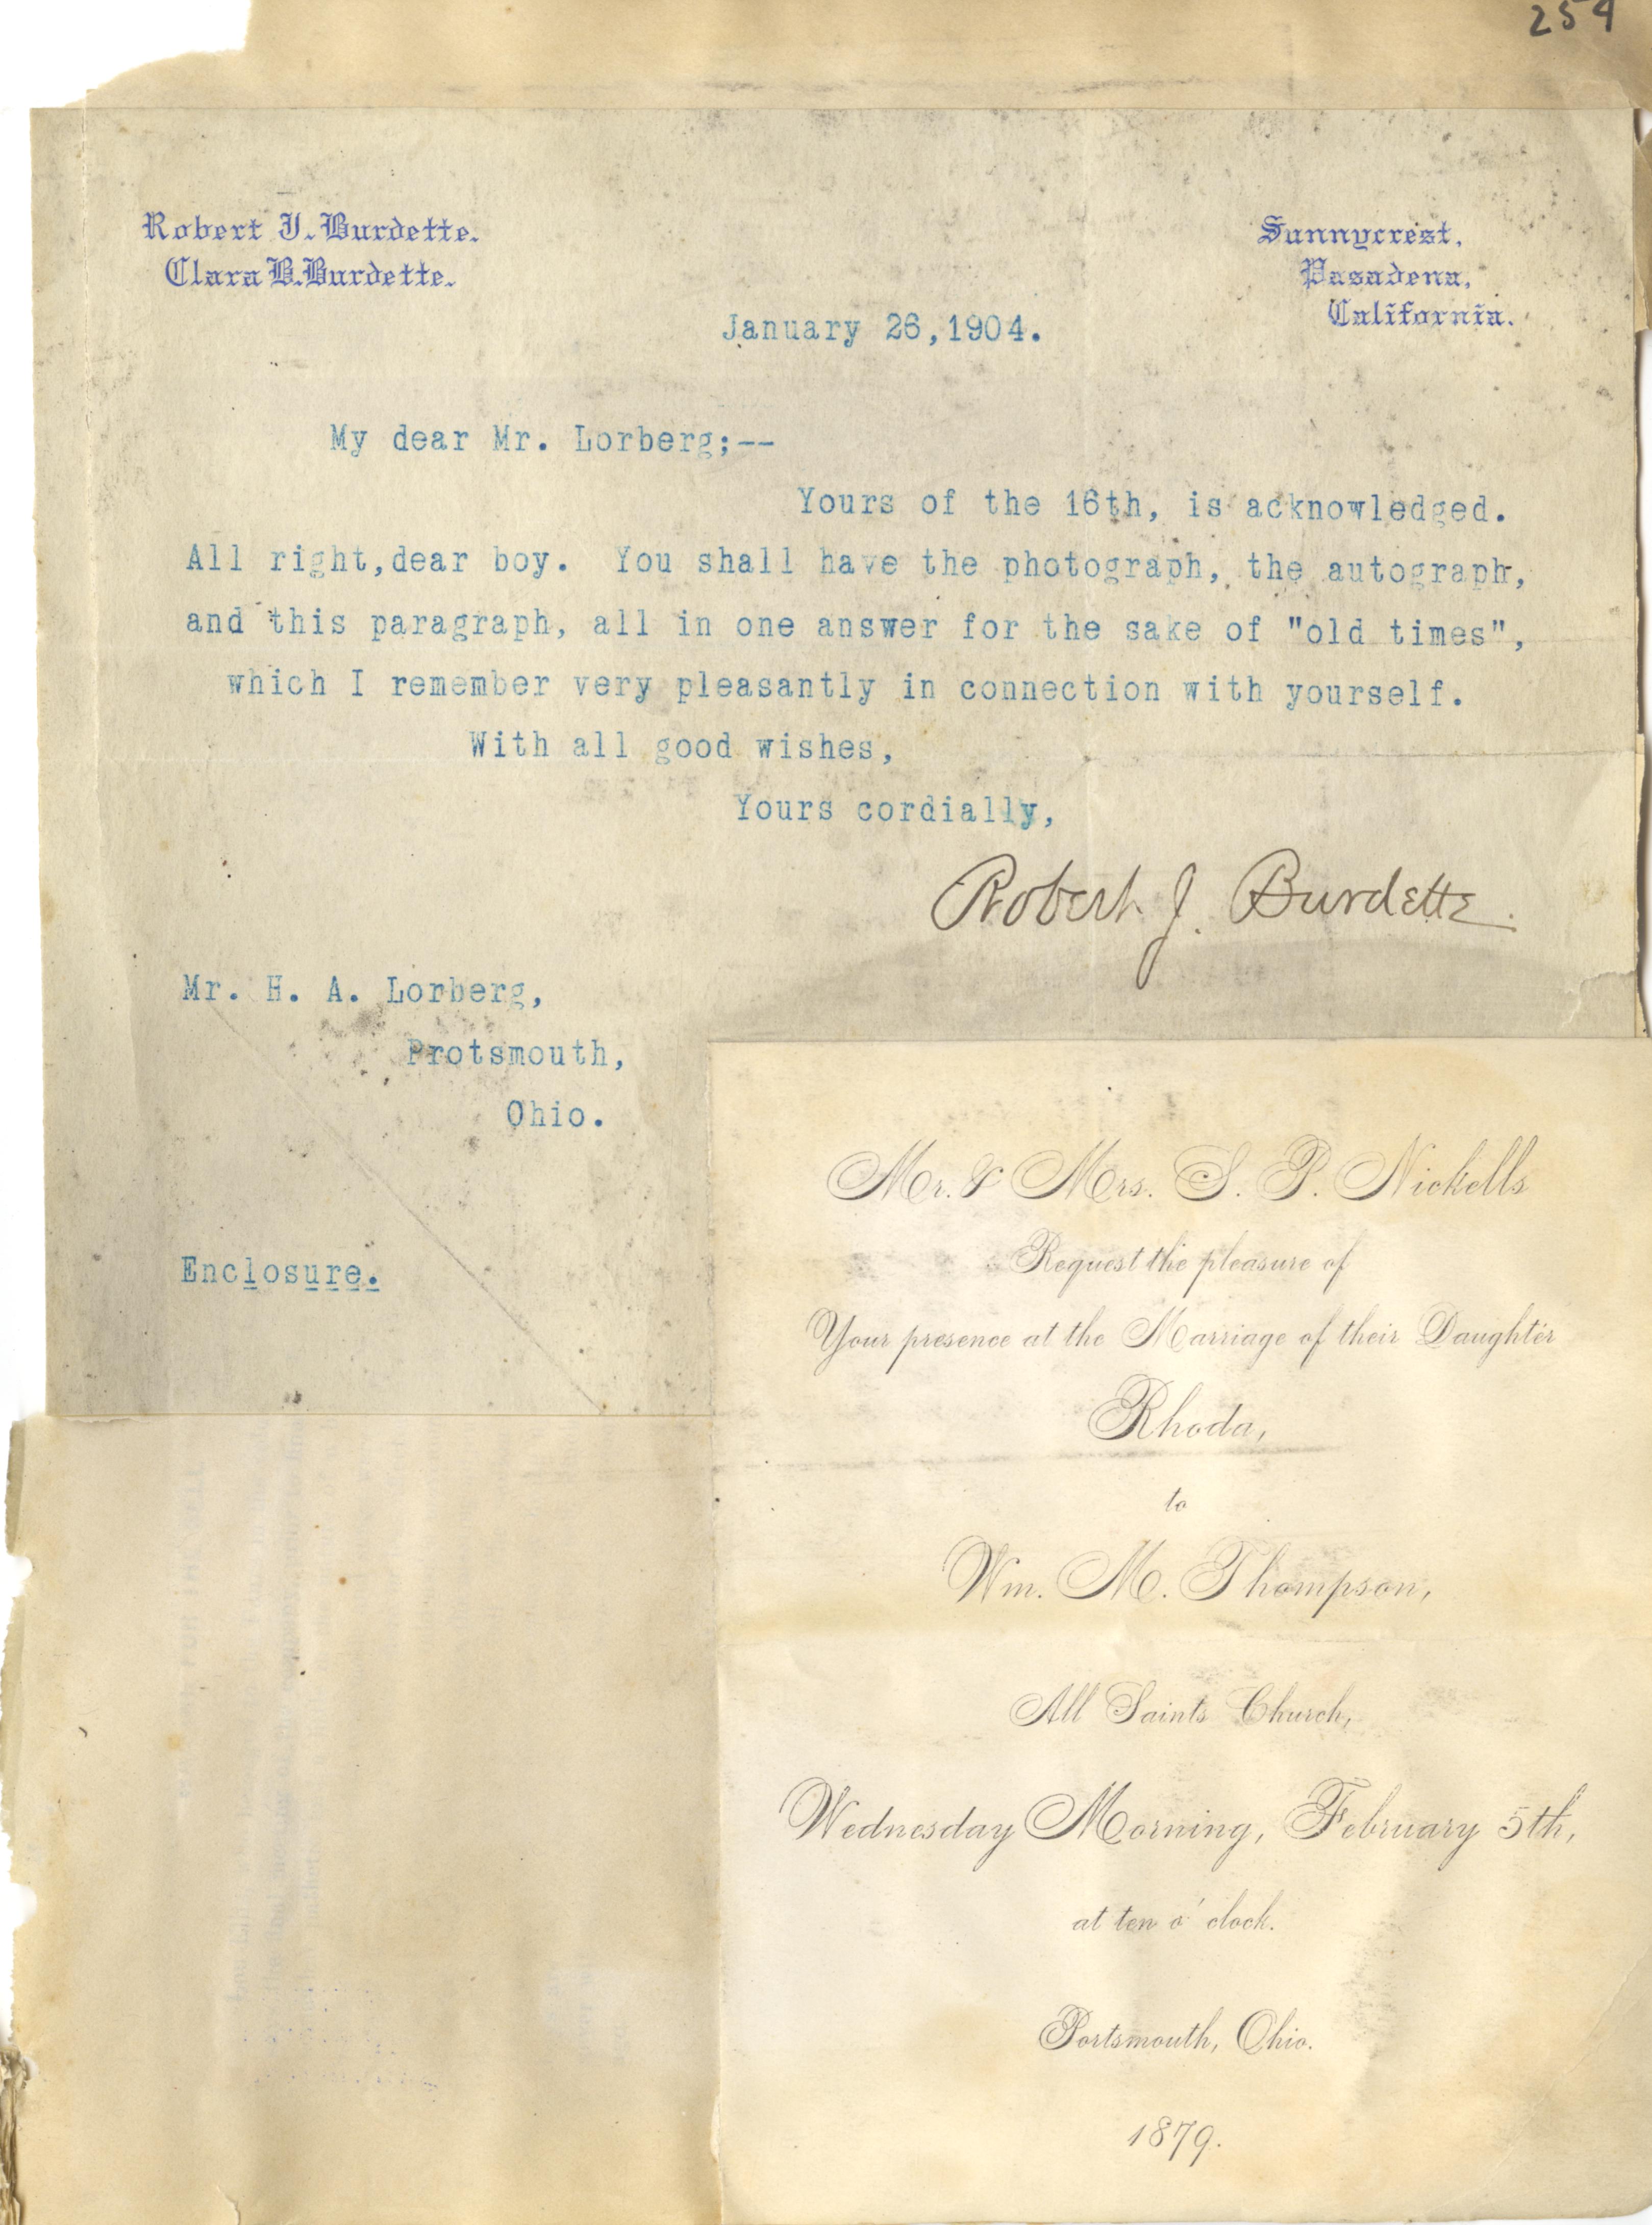 254
Robert J. Burdette.
Clara B. Burdette.
Sunnycrest,
Pasadena,
California.
January 26,1904.
My dear Mr. Lorberg;--
Yours of the 16th, is acknowledged.
All right,dear boy. You shall have the photograph, the autograph,
and this paragraph, all in one answer for the sake of "old times",
which I remember very pleasantly in connection with yourself.
With all good wishes,
Yours cordially,
Robert J. Burdette.
Mr. H. A. Lorberg,
Protsmouth,
Ohio.
Enclosure.
Mr. & Mrs. S. P. Nickells
Request the pleasure of
Your presence at the Marriage of their Daughter
Rhoda,
to
Wm. M. Thompson,
All Saints Church,
Wednesday Morning, February 5th,
at ten o'clock.
Portsmouth, Ohio.
1879.